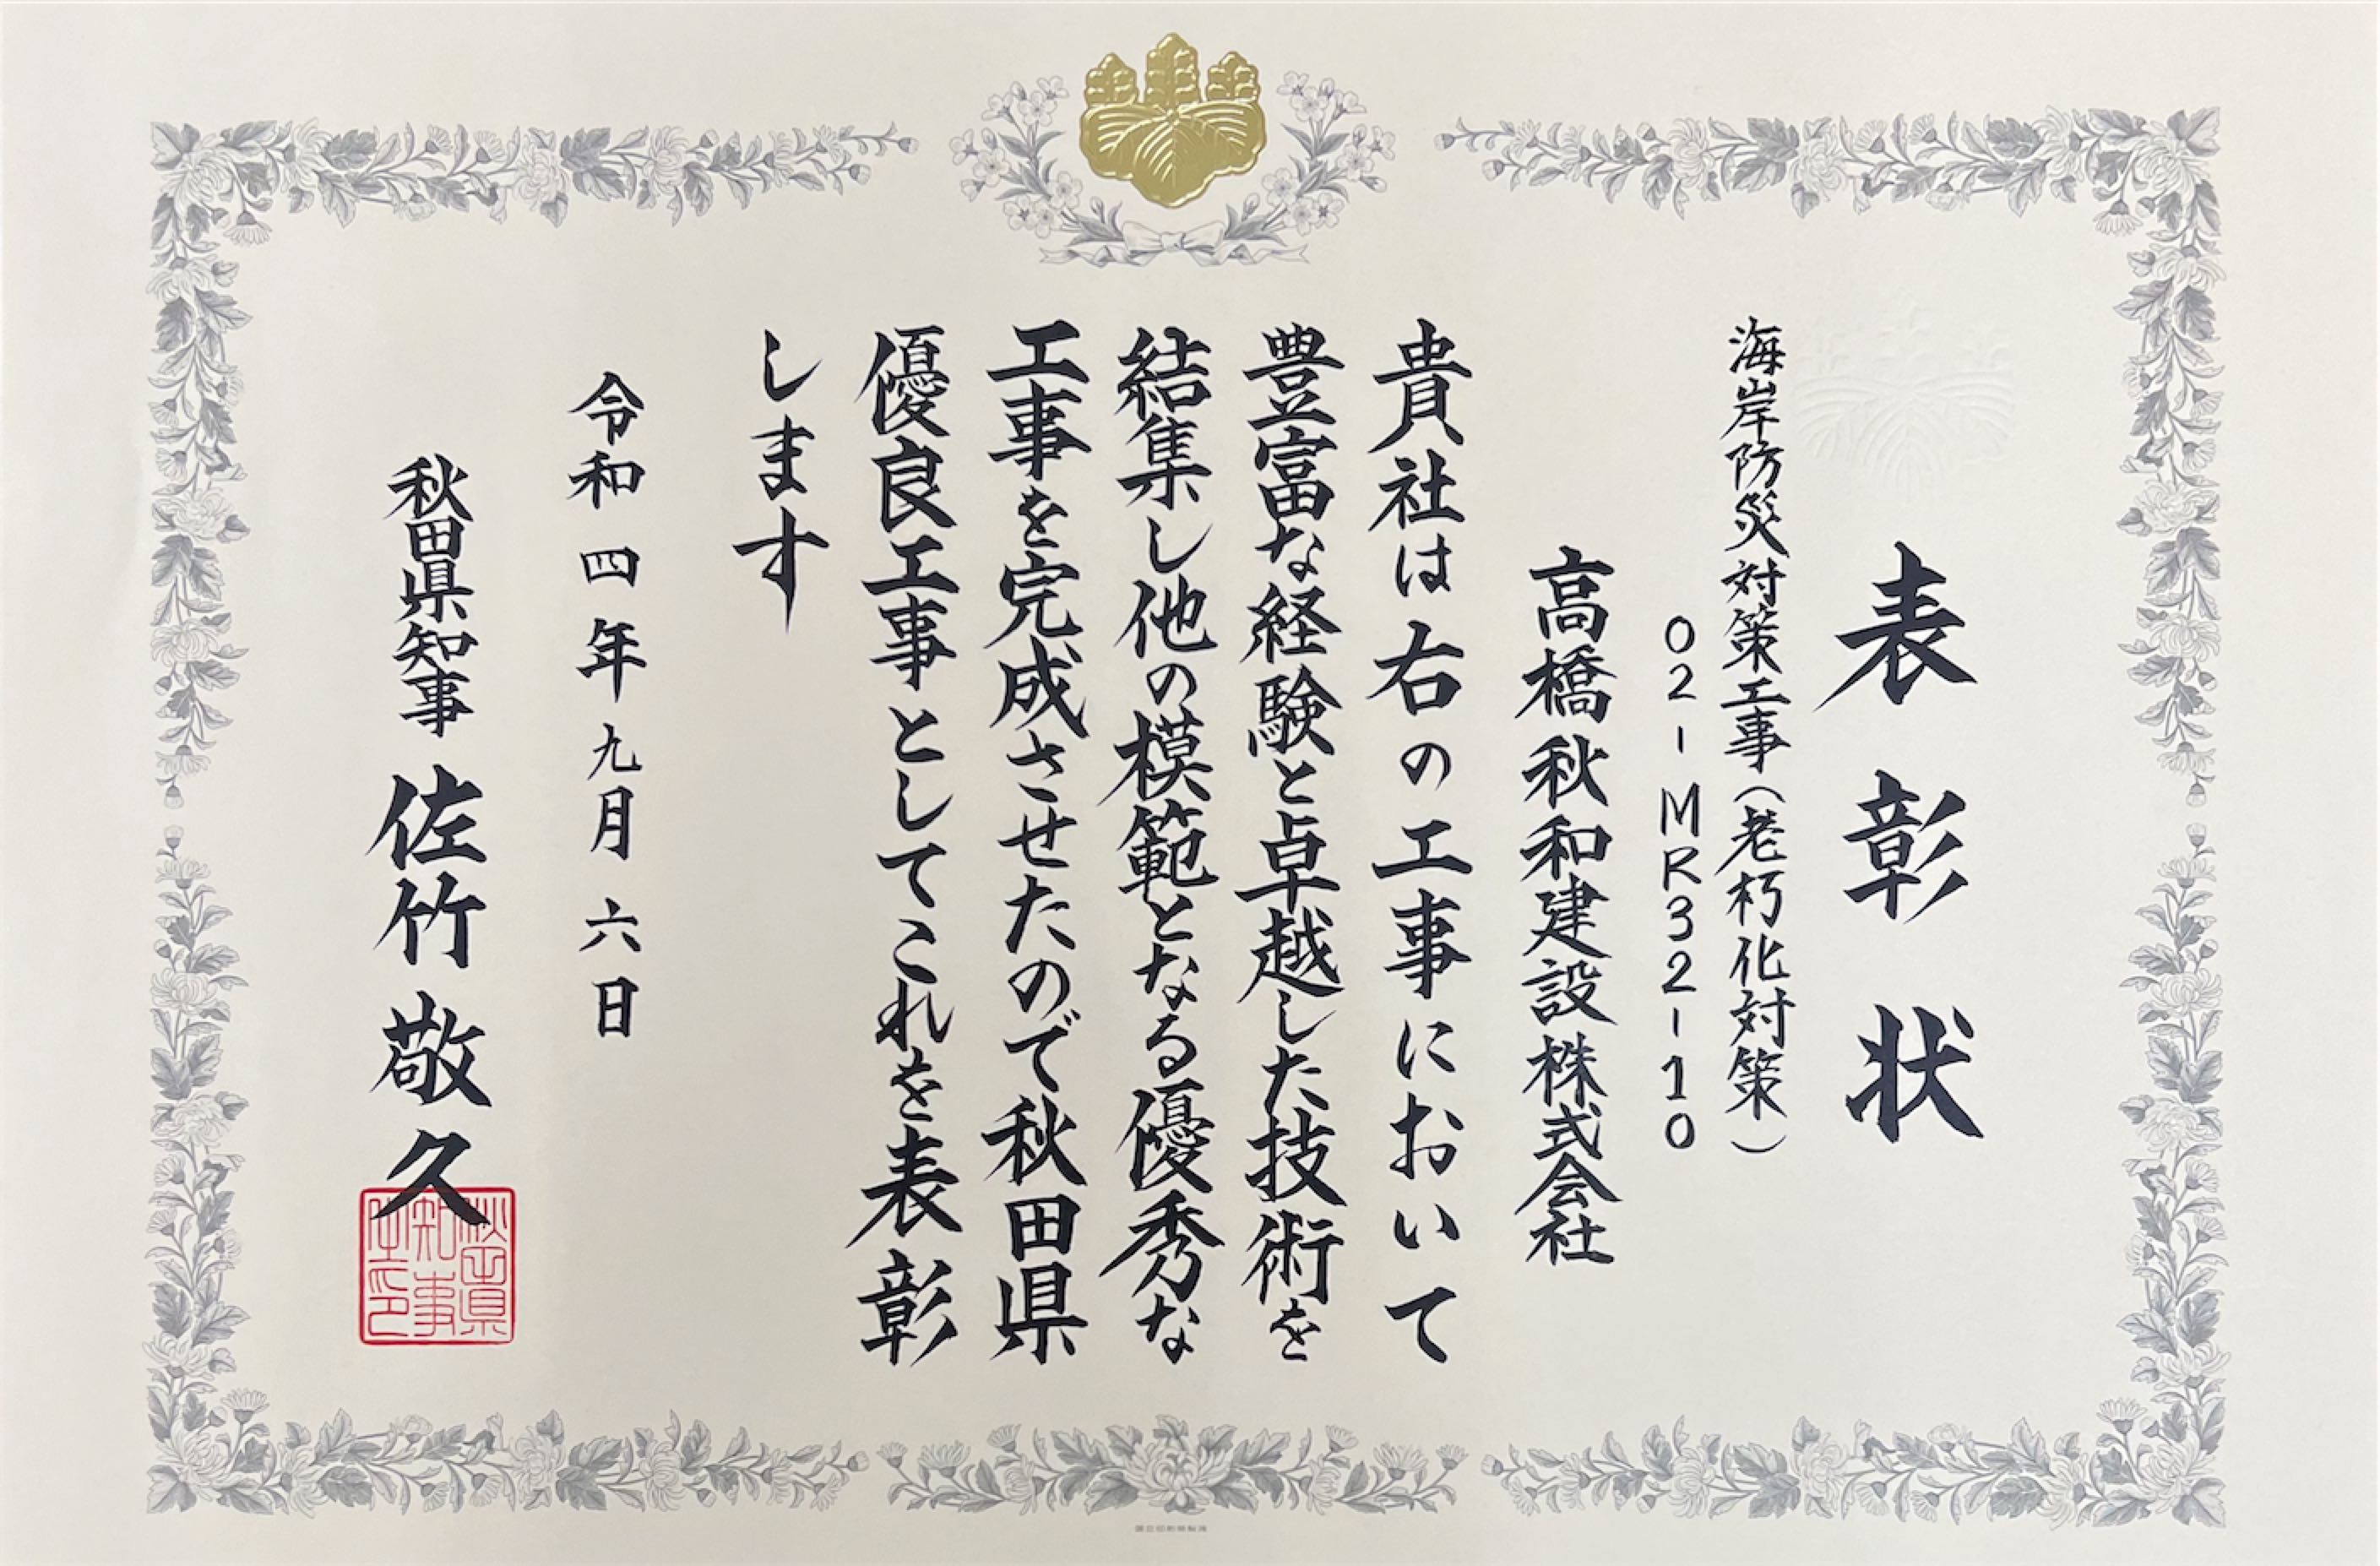 表彰状
海岸防災対策工事(老朽化対策)
02-MR32-10
高橋秋和建設株式会社
貴社は右の工事において
豊富な経験と卓越した技術を
結集し他の模範となる優秀な
工事を完成させたので秋田県
優良工事としてこれを表彰
します
令和四年九月六日
秋田県知事 佐竹敬久
秋田県
知事
之印